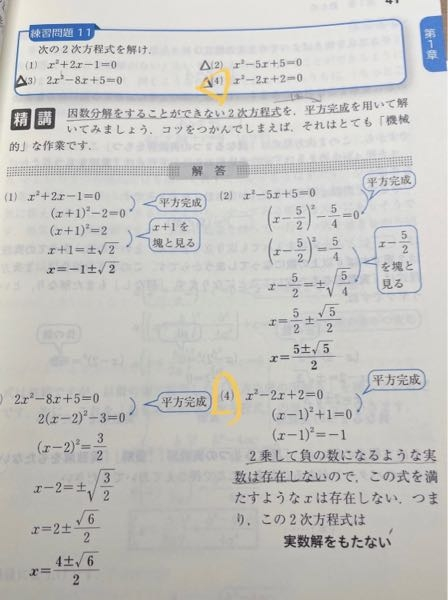 41
第1章
練習問題 11
次の2次方程式を解け.
(1) x²+2x-1=0 (2) x²-5x+5=0
(3) 2x²-8x+5=0 (4) x²-2x+2=0
精講 因数分解をすることができない2次方程式を,平方完成を用いて解
いてみましょう.コツをつかんでしまえば,それはとても「機械
的」な作業です.
解答
(1) x²+2x-1=0
(x+1)²-2=0
平方完成
(x+1)²=2
x+1を
塊と見る
x+1=±√2
x=-1±√2
(2) x²-5x+5=0
平方完成
(x-5/2)²-5/4=0
(x-5/2)²=5/4
x-5/2
を塊と
見る
x-5/2=±√(5/4)
x=5/2±√5/2
x=(5±√5)/2
) 2x²-8x+5=0
平方完成
2(x-2)²-3=0
(x-2)²=3/2
x-2=±√(3/2)
x=2±√6/2
x=(4±√6)/2
(4) x²-2x+2=0
平方完成
(x-1)²+1=0
(x-1)²=-1
2乗して負の数になるような実
数は存在しないので,この式を満
たすようなxは存在しない.つま
り,この2次方程式は
実数解をもたない